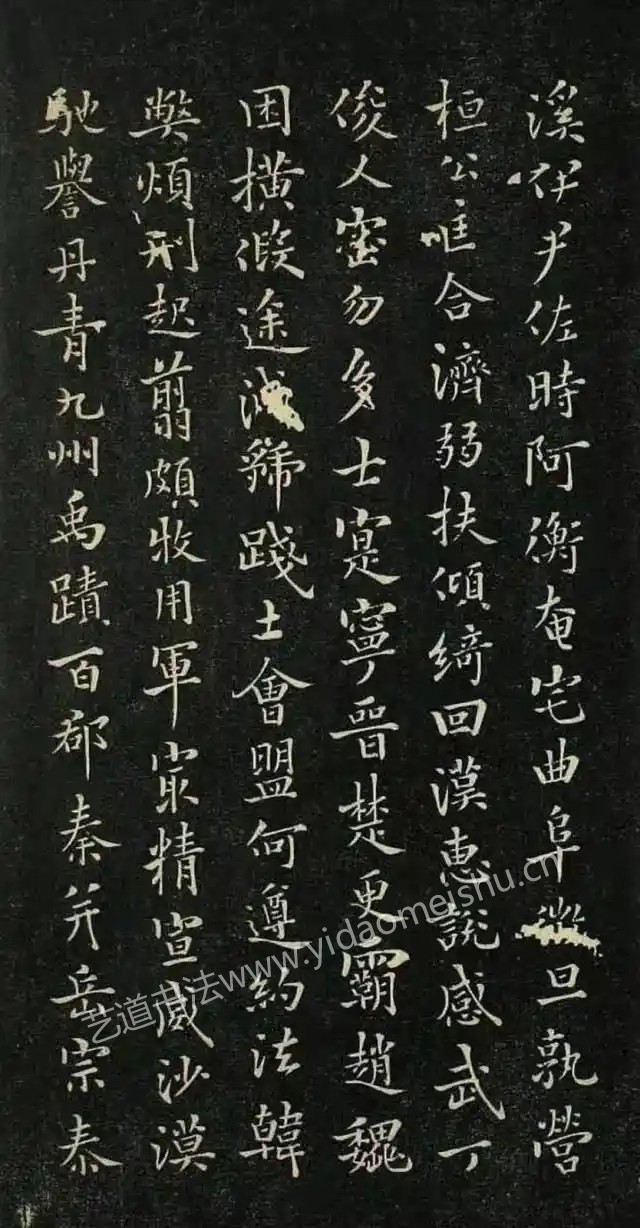 溪伊尹佐時阿衡奄宅曲阜微旦孰營
桓公匡合濟弱扶傾綺回漢惠說感武丁
俊乂密勿多士寔寧晉楚更霸趙魏
困橫假途滅虢踐土會盟何遵約法韓
弊煩刑起翦頗牧用軍最精宣威沙漠
馳譽丹青九州禹蹟百郡秦并岳宗泰
艺道书法www.yidaomeishu.cn